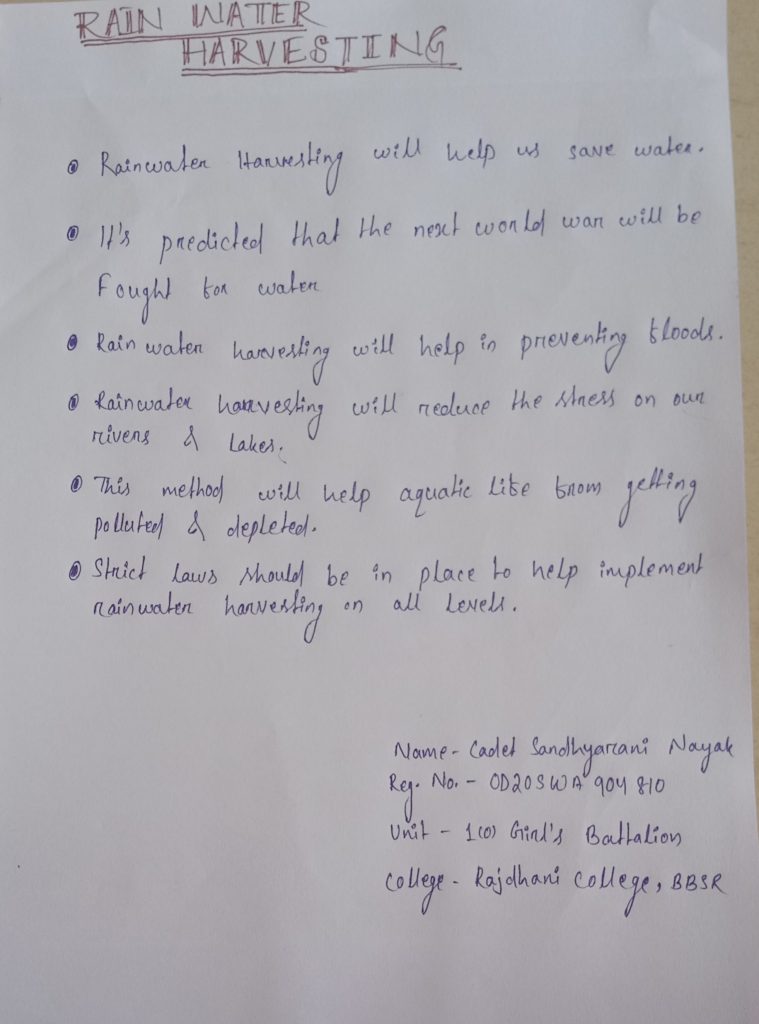 RAIN WATER
HARVESTING
Rainwater Harvesting will help us save water.
It's predicted that the next world war will be
Fought for water
Rain water harvesting will help in preventing floods.
Rainwater harvesting will reduce the stress on our
rivers & Lakes.
This method will help aquatic life from getting
polluted & depleted.
Strict Laws should be in place to help implement
rainwater harvesting on all Levels.
Name - Cadet Sandhyarani Nayak
Reg. No. - OD20SWA 904 810
Unit - 1(O) Girl's Battalion
College - Rajdhani College, BBSR